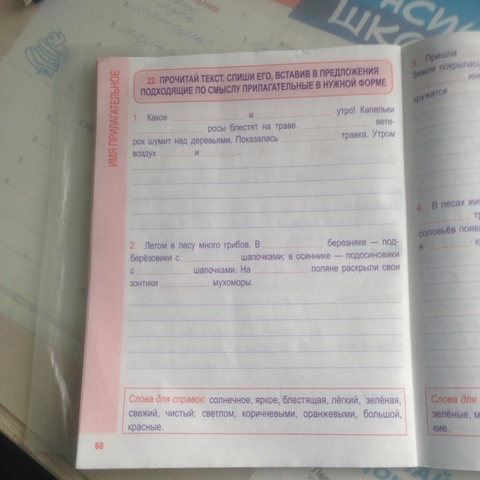 АСИ
ШКО
ИМЯ ПРИЛАГАТЕЛЬНОЕ
22. ПРОЧИТАЙ ТЕКСТ. СПИШИ ЕГО, ВСТАВИВ В ПРЕДЛОЖЕНИЯ
ПОДХОДЯЩИЕ ПО СМЫСЛУ ПРИЛАГАТЕЛЬНЫЕ В НУЖНОЙ ФОРМЕ
1. Какое ____ и ____ утро! Капельки
____ росы блестят на траве. ____ вете-
рок шумит над деревьями. Показалась ____ травка. Утром
воздух ____ и ____.
2. Летом в лесу много грибов. В ____ березняке — под-
берёзовики с ____ шапочками; в осиннике — подосиновики
с ____ шапочками. На ____ поляне раскрыли свои
зонтики ____ мухоморы.
Слова для справок: солнечное, яркое, блестящая, лёгкий, зелёная,
свежий, чистый; светлом, коричневыми, оранжевыми, большой,
красные.
60
3. Пришла
Земля покрылась
кружатся
4. В лесах жи
соловьёв появ
в
Слова для
зелёные, м
кие.